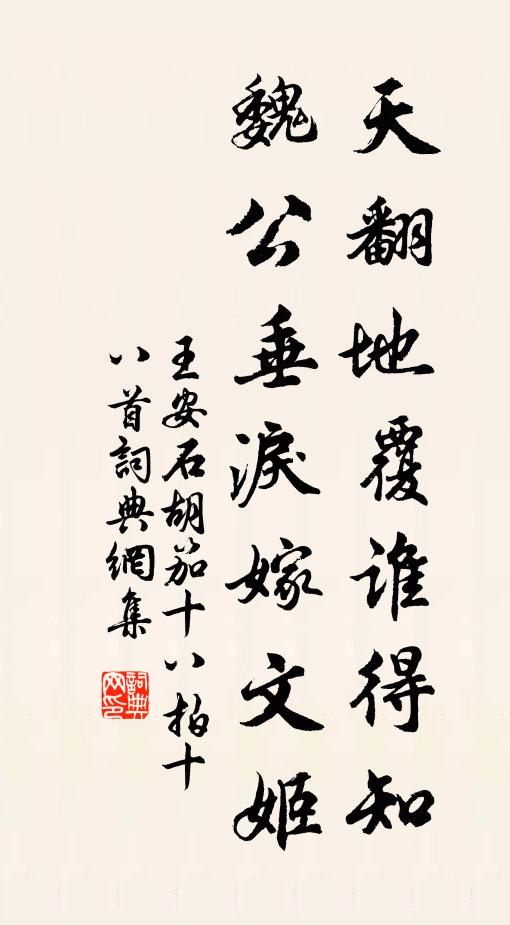 天翻地覆誰得知
魏公垂淚嫁文姬
王安石胡笳十八拍十
八首詞典網集
詞典網印